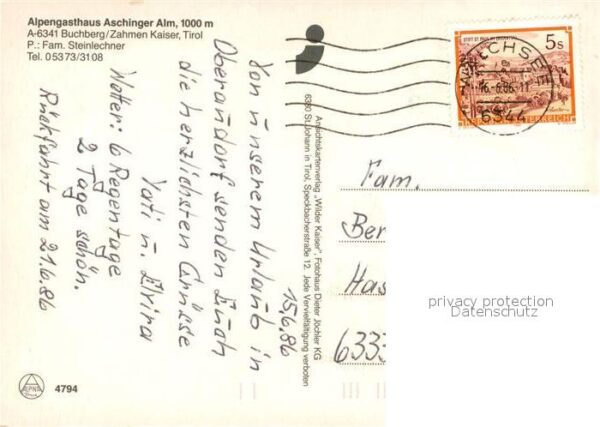 Alpengasthaus Aschinger Alm, 1000 m
A-6341 Buchberg/Zahmen Kaiser, Tirol
P.: Fam. Steinlechner
Tel. 05373/3108
15.6.86
Von unserem Urlaub in
Oberaudorf senden Euch
die herzlichsten Grüsse
Vati u. Elvira
Wetter: 6 Regentage
2 Tage schön.
Rückfahrt am 21.6.86
Ansichtskartenverlag „Wilder Kaiser", Fotohaus Dieter Jöchler KG
6380 St. Johann in Tirol, Speckbacherstraße 12. Jede Vervielfältigung verboten
5s
ÖSTERREICH
WALCHSEE
16.-6.86.-11
6344
Fam.
Ber
Has
6333
privacy protection
Datenschutz
4794